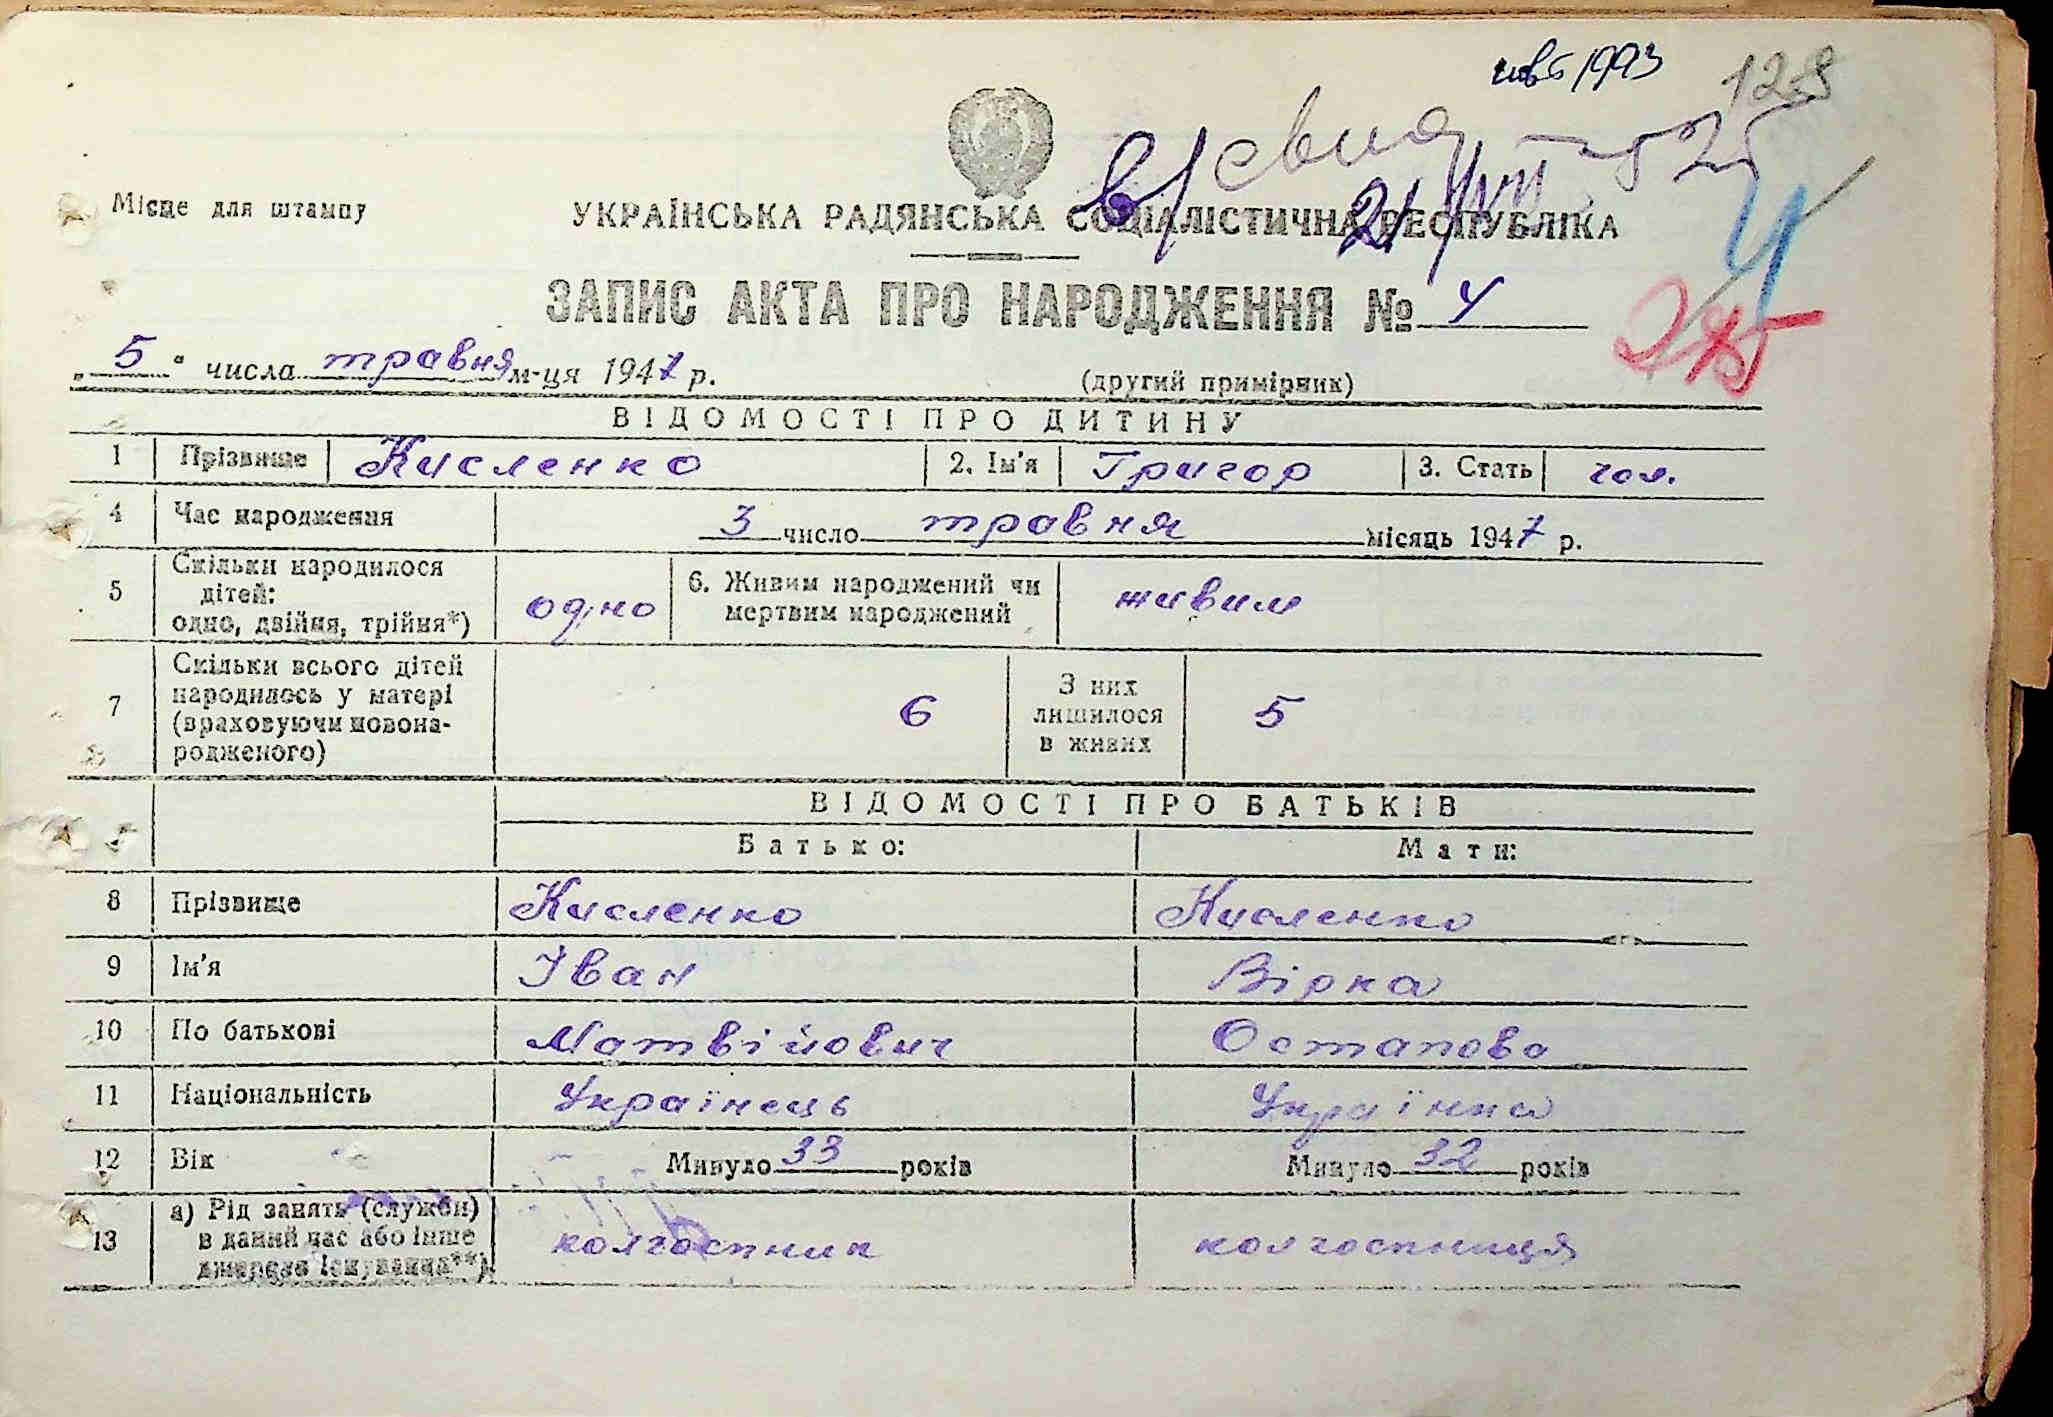 128
Місце для штампу
УКРАЇНСЬКА РАДЯНСЬКА СОЦІАЛІСТИЧНА РЕСПУБЛІКА
ЗАПИС АКТА ПРО НАРОДЖЕННЯ № 4
„5" числа травня м-ця 1947 р.
(другий примірник)
ВІДОМОСТІ ПРО ДИТИНУ
1 Прізвище Кисленко 2. Ім'я Григор 3. Стать чол.
4 Час народження 3 число травня місяць 1947 р.
5 Скільки народилося дітей: одно, двійня, трійня*) одно 6. Живим народжений чи мертвим народжений живим
7 Скільки всього дітей народилось у матері (враховуючи новонародженого) 6 З них лишилося в живих 5
ВІДОМОСТІ ПРО БАТЬКІВ
Батько: Мати:
8 Прізвище Кисленко Кисленко
9 Ім'я Іван Вірка
10 По батькові Матвійович Остапова
11 Національність Українець Українка
12 Вік Минуло 33 років Минуло 32 років
13 а) Рід занять (служби) в даний час або інше джерело існування**) колгоспник колгоспниця